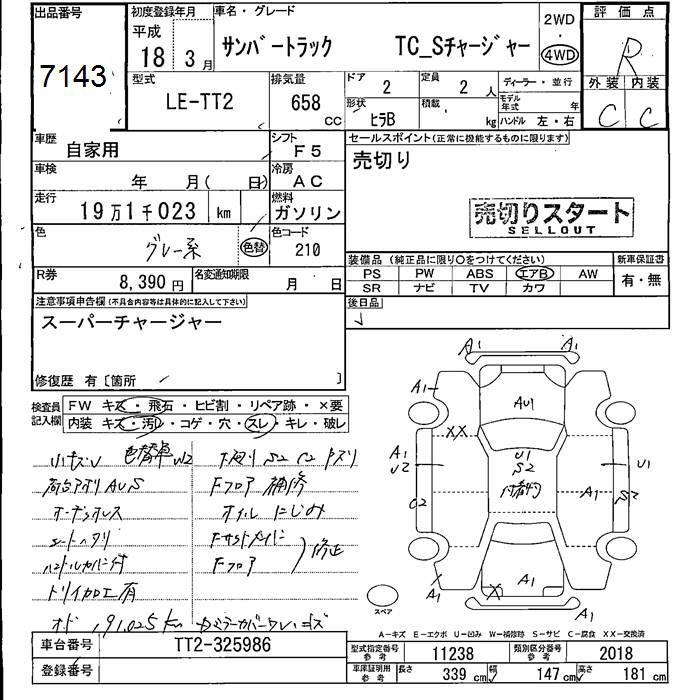 出品番号
7143
初度登録年月
平成
18 3 月
車名・グレード
サンバートラック TC_Sチャージャー
2WD
・
4WD
評価点
R
外装 内装
C C
型式
LE-TT2
排気量
658
cc
ドア
2
定員
2 人
ディーラー・並行
モデル年式 年
形状
ヒラB
積載
kg
ハンドル 左・右
車歴
自家用
シフト
F5
セールスポイント(正常に機能するものに限ります)
売切り
車検
年 月( 日)
冷房
AC
走行
19万1千023 km
燃料
ガソリン
売切りスタート
SELLOUT
色
グレー系
色替
色コード
210
装備品(純正品に限り○をつけてください)
新車保証書
PS PW ABS エアB AW
SR ナビ TV カワ
有・無
R券
8,390 円
名変通知期限
月 日
注意事項申告欄(不具合内容等は具体的に記入して下さい)
スーパーチャージャー
後日品
修復歴 有〔箇所 〕
検査員記入欄
FW キズ・飛石・ヒビ割・リペア跡・×要
内装 キズ・汚レ・コゲ・穴・スレ・キレ・破レ
小キズU 色替車 U2
下廻り S2 C2
Fフロア 補修
オーディオレス
オイルにじみ
シートヘタリ
ハンドルカバー付
Fフロア
修正
ドリイ加工有
オド 191,025 km
A1 A1
A1
AU1
XX
A1
U2
U1
S2
U1
C2
A1
S2
A1
A1
X
A1
スペア
A-キズ E-エクボ U-凹み W-補修跡 S-サビ C-腐食 XX-交換済
車台番号
TT2-325986
登録番号
型式指定番号参考
11238
類別区分番号参考
2018
車庫証明用参考
長さ 339 cm 幅 147 cm 高さ 181 cm